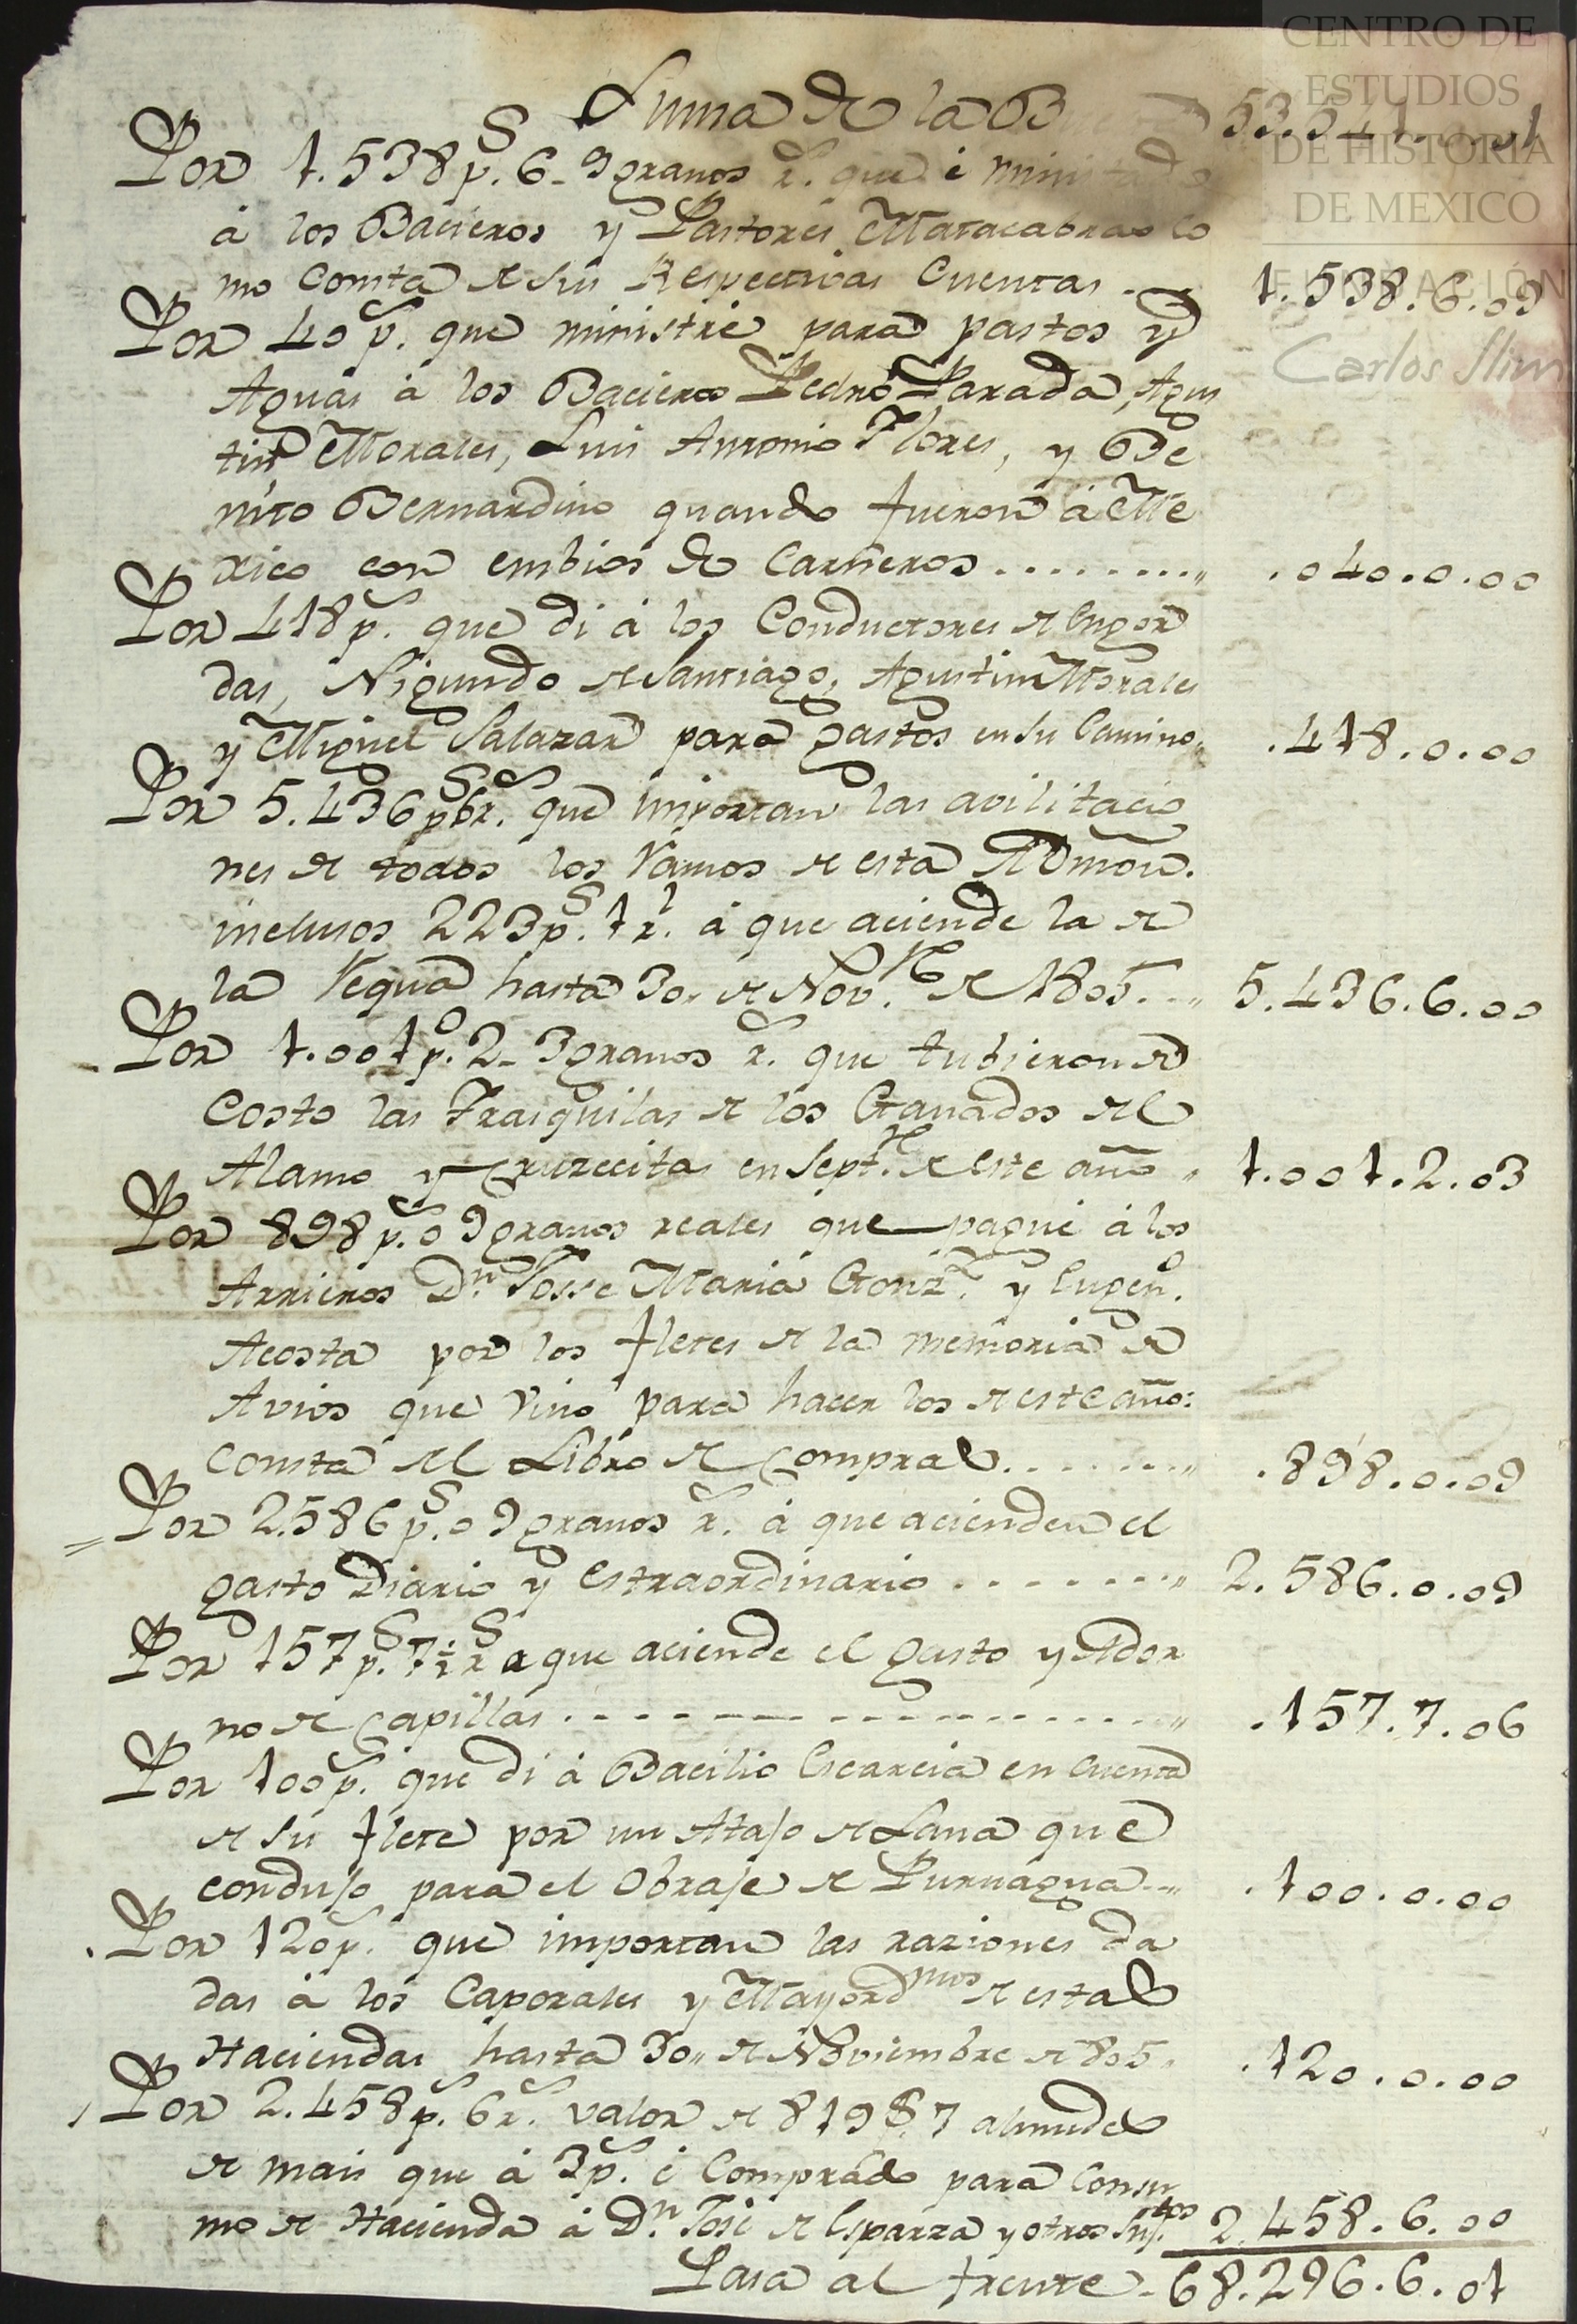 CENTRO DE
ESTUDIOS
DE HISTORIA
DE MEXICO
FUNDACIÓN
Carlos Slim
Suma de la B 53.54
Por 1.538 p.s 6_9 granos r.s que é minist
á los Bacieros y Pastores Matacabras co
mo consta de sus Respectivas Cuentas . . 1.538.6.09
Por 40 p.s que ministré para pastos y
Aguas á los Bacieros Pedro Parada, Agus
tin Morales, Luis Antonio Flores, y Be
nito Bernardino quando fueron á Me
xico con embios de Carneros . . . . . . . . . „ .040.0.00
Por 418 p.s que di á los Conductores de Engor
das, Sigundo de Santiago, Agustin Morales
y Miguel Salazar para gastos en su Camino „ .418.0.00
Por 5.436 p.s 6 r.s que importan las avilitacio
nes de todos los Ramos de esta Admōn.
inclusos 223 p.s 1 r.l á que aciende la de
la Yegua hasta 30„ de Nov.re de 1805 . . „ 5.436.6.00
Por 1.001 p.s 2_3 granos r.s que tubieron de
costo las Trasquilas de los Ganados del
Alamo y Cruzecitas en Sept.re de este año „ 1.001.2.03
Por 898 p.s 0 9 granos reales que pagué á los
Arrieros D.n Josse Maria Gonz.z y Eugen.o
Acosta por los fletes de la memoria de
Avios que vino para hacer los de este año:
consta del Libro de Compras . . . . . . . „ .898.0.09
Por 2.586 p.s 0 9 granos r.s á que acienden el
gasto Diario y Estraordinario . . . . . . . „ 2.586.0.09
Por 157 p.s 7½ r.s a que aciende el gasto y Ador
no de Capillas . - - - - - - - - - - - - - - „ .157.7.06
Por 100 p.s que di á Bacilio Escarcia en cuenta
de su flete por un Atajo de Lana que
condujo para el Obraje de Puruagua . . „ .100.0.00
Por 120 p.s que importan las raziones da
das á los Caporales y Mayord.mos de estas
Haciendas hasta 30„ de Noviembre de 805 „ .120.0.00
Por 2.458 p.s 6 r.s valor de 819 7 almudes
de mais que á 3 p.s é Comprado para Consu
mo de Hacienda á D.n José de Esparza y otros Suj.tos 2.458.6.00
Pasa al frente - 68.296.6.01